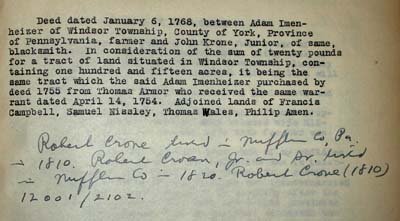 Deed dated January 6, 1768, between Adam Imen-
heizer of Windsor Township, County of York, Province
of Pennsylvania, farmer and John Krone, Junior, of same,
blacksmith. In consideration of the sum of twenty pounds
for a tract of land situated in Windsor Township, con-
taining one hundred and fifteen acres, it being the
same tract which the said Adam Imenheizer purchased by
deed 1755 from Thomas Armor who received the same war-
rant dated April 14, 1754. Adjoined lands of Francis
Campbell, Samuel Nissley, Thomas Wales, Philip Amen.
Robert Crone lived in Mufflin Co, Pa.
in 1810. Robert Jr. and Sr. lived
in Mufflin Co in 1820. Robert Crone (1810)
12001/2102.